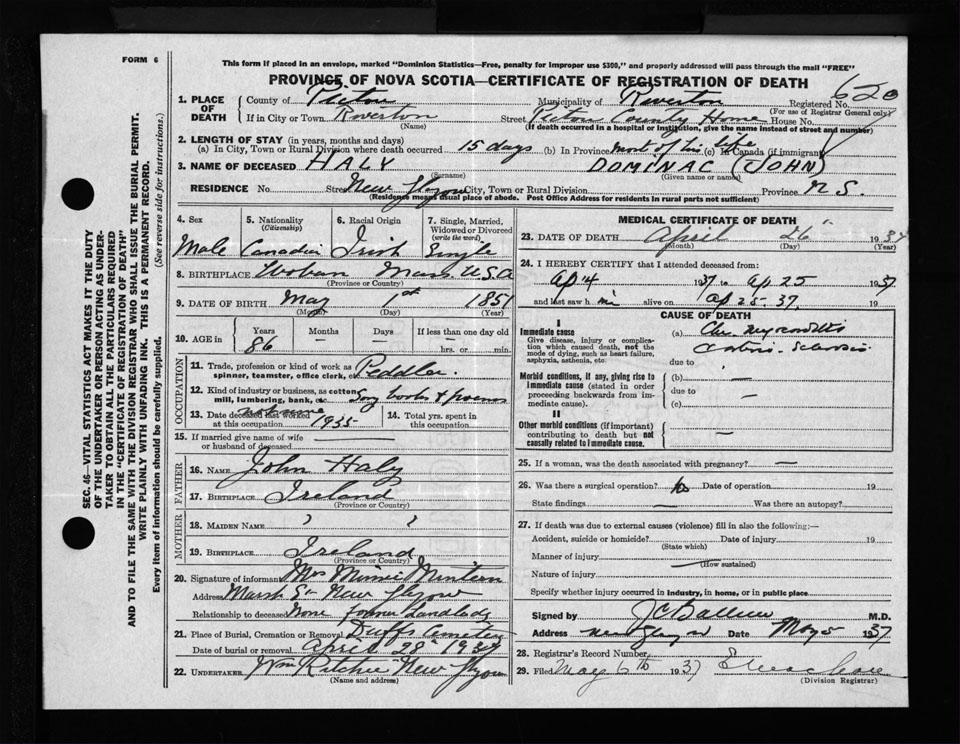 FORM 6
This form if placed in an envelope, marked "Dominion Statistics—Free, penalty for improper use $300," and properly addressed will pass through the mail "FREE"
PROVINCE OF NOVA SCOTIA—CERTIFICATE OF REGISTRATION OF DEATH
620
1. PLACE OF DEATH County of Pictou Municipality of Riverton Registered No.
(For use of Registrar General only)
If in City or Town Riverton Street Pictou County Home House No.
(Name) (If death occurred in a hospital or institution, give the name instead of street and number)
2. LENGTH OF STAY (in years, months and days)
(a) In City, Town or Rural Division where death occurred 15 days (b) In Province most of his life (c) In Canada (if immigrant)
3. NAME OF DECEASED HALY DOMINAC (JOHN)
(Surname) (Given name or names)
RESIDENCE No. Street New Glasgow City, Town or Rural Division Province N S.
(Residence means usual place of abode. Post Office Address for residents in rural parts not sufficient)
4. Sex 5. Nationality (Citizenship) 6. Racial Origin 7. Single, Married, Widowed or Divorced (write the word)
Male Canadian Irish Single
8. BIRTHPLACE Woban Mass. U.S.A
(Province or Country)
9. DATE OF BIRTH May 1st 1851
(Month) (Day) (Year)
10. AGE in Years Months Days If less than one day old
86 hrs. or min.
OCCUPATION
11. Trade, profession or kind of work as spinner, teamster, office clerk, etc. Peddler.
12. Kind of industry or business, as cotton mill, lumbering, bank, etc. Song books & poems
13. Date deceased last worked at this occupation 1935 14. Total yrs. spent in this occupation
15. If married give name of wife or husband of deceased
FATHER
16. NAME John Haly
17. BIRTHPLACE Ireland
(Province or Country)
MOTHER
18. MAIDEN NAME ? ?
19. BIRTHPLACE Ireland
(Province or Country)
20. Signature of informant Mrs Minnie
Address Marsh St New Glasgow
Relationship to deceased None Former Landlady
21. Place of Burial, Cremation or Removal Duffs Cemetery
Date of burial or removal April 28th 1937
22. UNDERTAKER Wm Ritchie New Glasgow
(Name and address)
MEDICAL CERTIFICATE OF DEATH
23. DATE OF DEATH April 26 1937
(Month) (Day) (Year)
24. I HEREBY CERTIFY that I attended deceased from:
Ap 14 1937 to Ap 25 1937
and last saw h im alive on Ap 25-37,
CAUSE OF DEATH
I
Immediate cause (a) Chr Myocarditis
Give disease, injury or complication which caused death, not the mode of dying, such as heart failure, asphyxia, asthenia, etc. due to
Morbid conditions, if any, giving rise to immediate cause (stated in order proceeding backwards from immediate cause). (b)
due to
(c)
II
Other morbid conditions (if important) contributing to death but not causally related to immediate cause.
25. If a woman, was the death associated with pregnancy? —
26. Was there a surgical operation? No Date of operation 19
State findings Was there an autopsy?
27. If death was due to external causes (violence) fill in also the following:—
Accident, suicide or homicide? Date of injury 19
(State which)
Manner of injury
(How sustained)
Nature of injury
Specify whether injury occurred in industry, in home, or in public place
Signed by M.D.
Address New Glasgow Date May 5 1937
28. Registrar's Record Number
29. Filed May 6th 1937
(Division Registrar)
SEC. 46—VITAL STATISTICS ACT MAKES IT THE DUTY
OF THE UNDERTAKER OR PERSON ACTING AS UNDER-
TAKER TO OBTAIN ALL THE PARTICULARS REQUIRED
IN THE "CERTIFICATE OF REGISTRATION OF DEATH"
AND TO FILE THE SAME WITH THE DIVISION REGISTRAR WHO SHALL ISSUE THE BURIAL PERMIT.
WRITE PLAINLY WITH UNFADING INK. THIS IS A PERMANENT RECORD.
Every item of information should be carefully supplied. (See reverse side for instructions.)